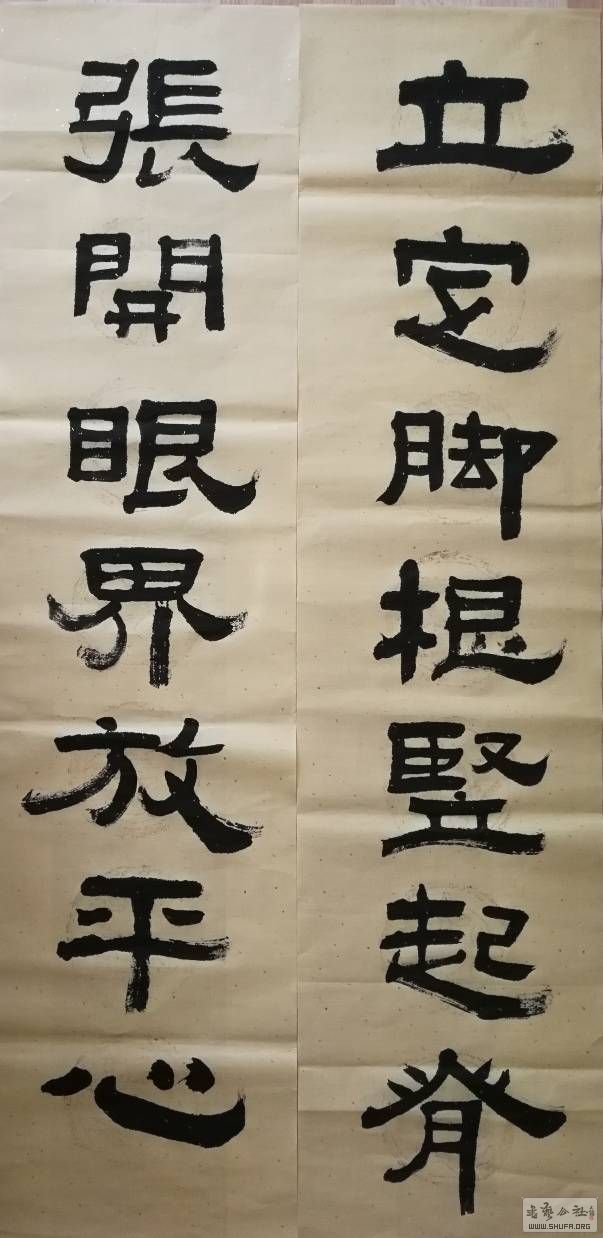 立定脚根竪起脊
張開眼界放平心
書藝公社
WWW.SHUFA.ORG